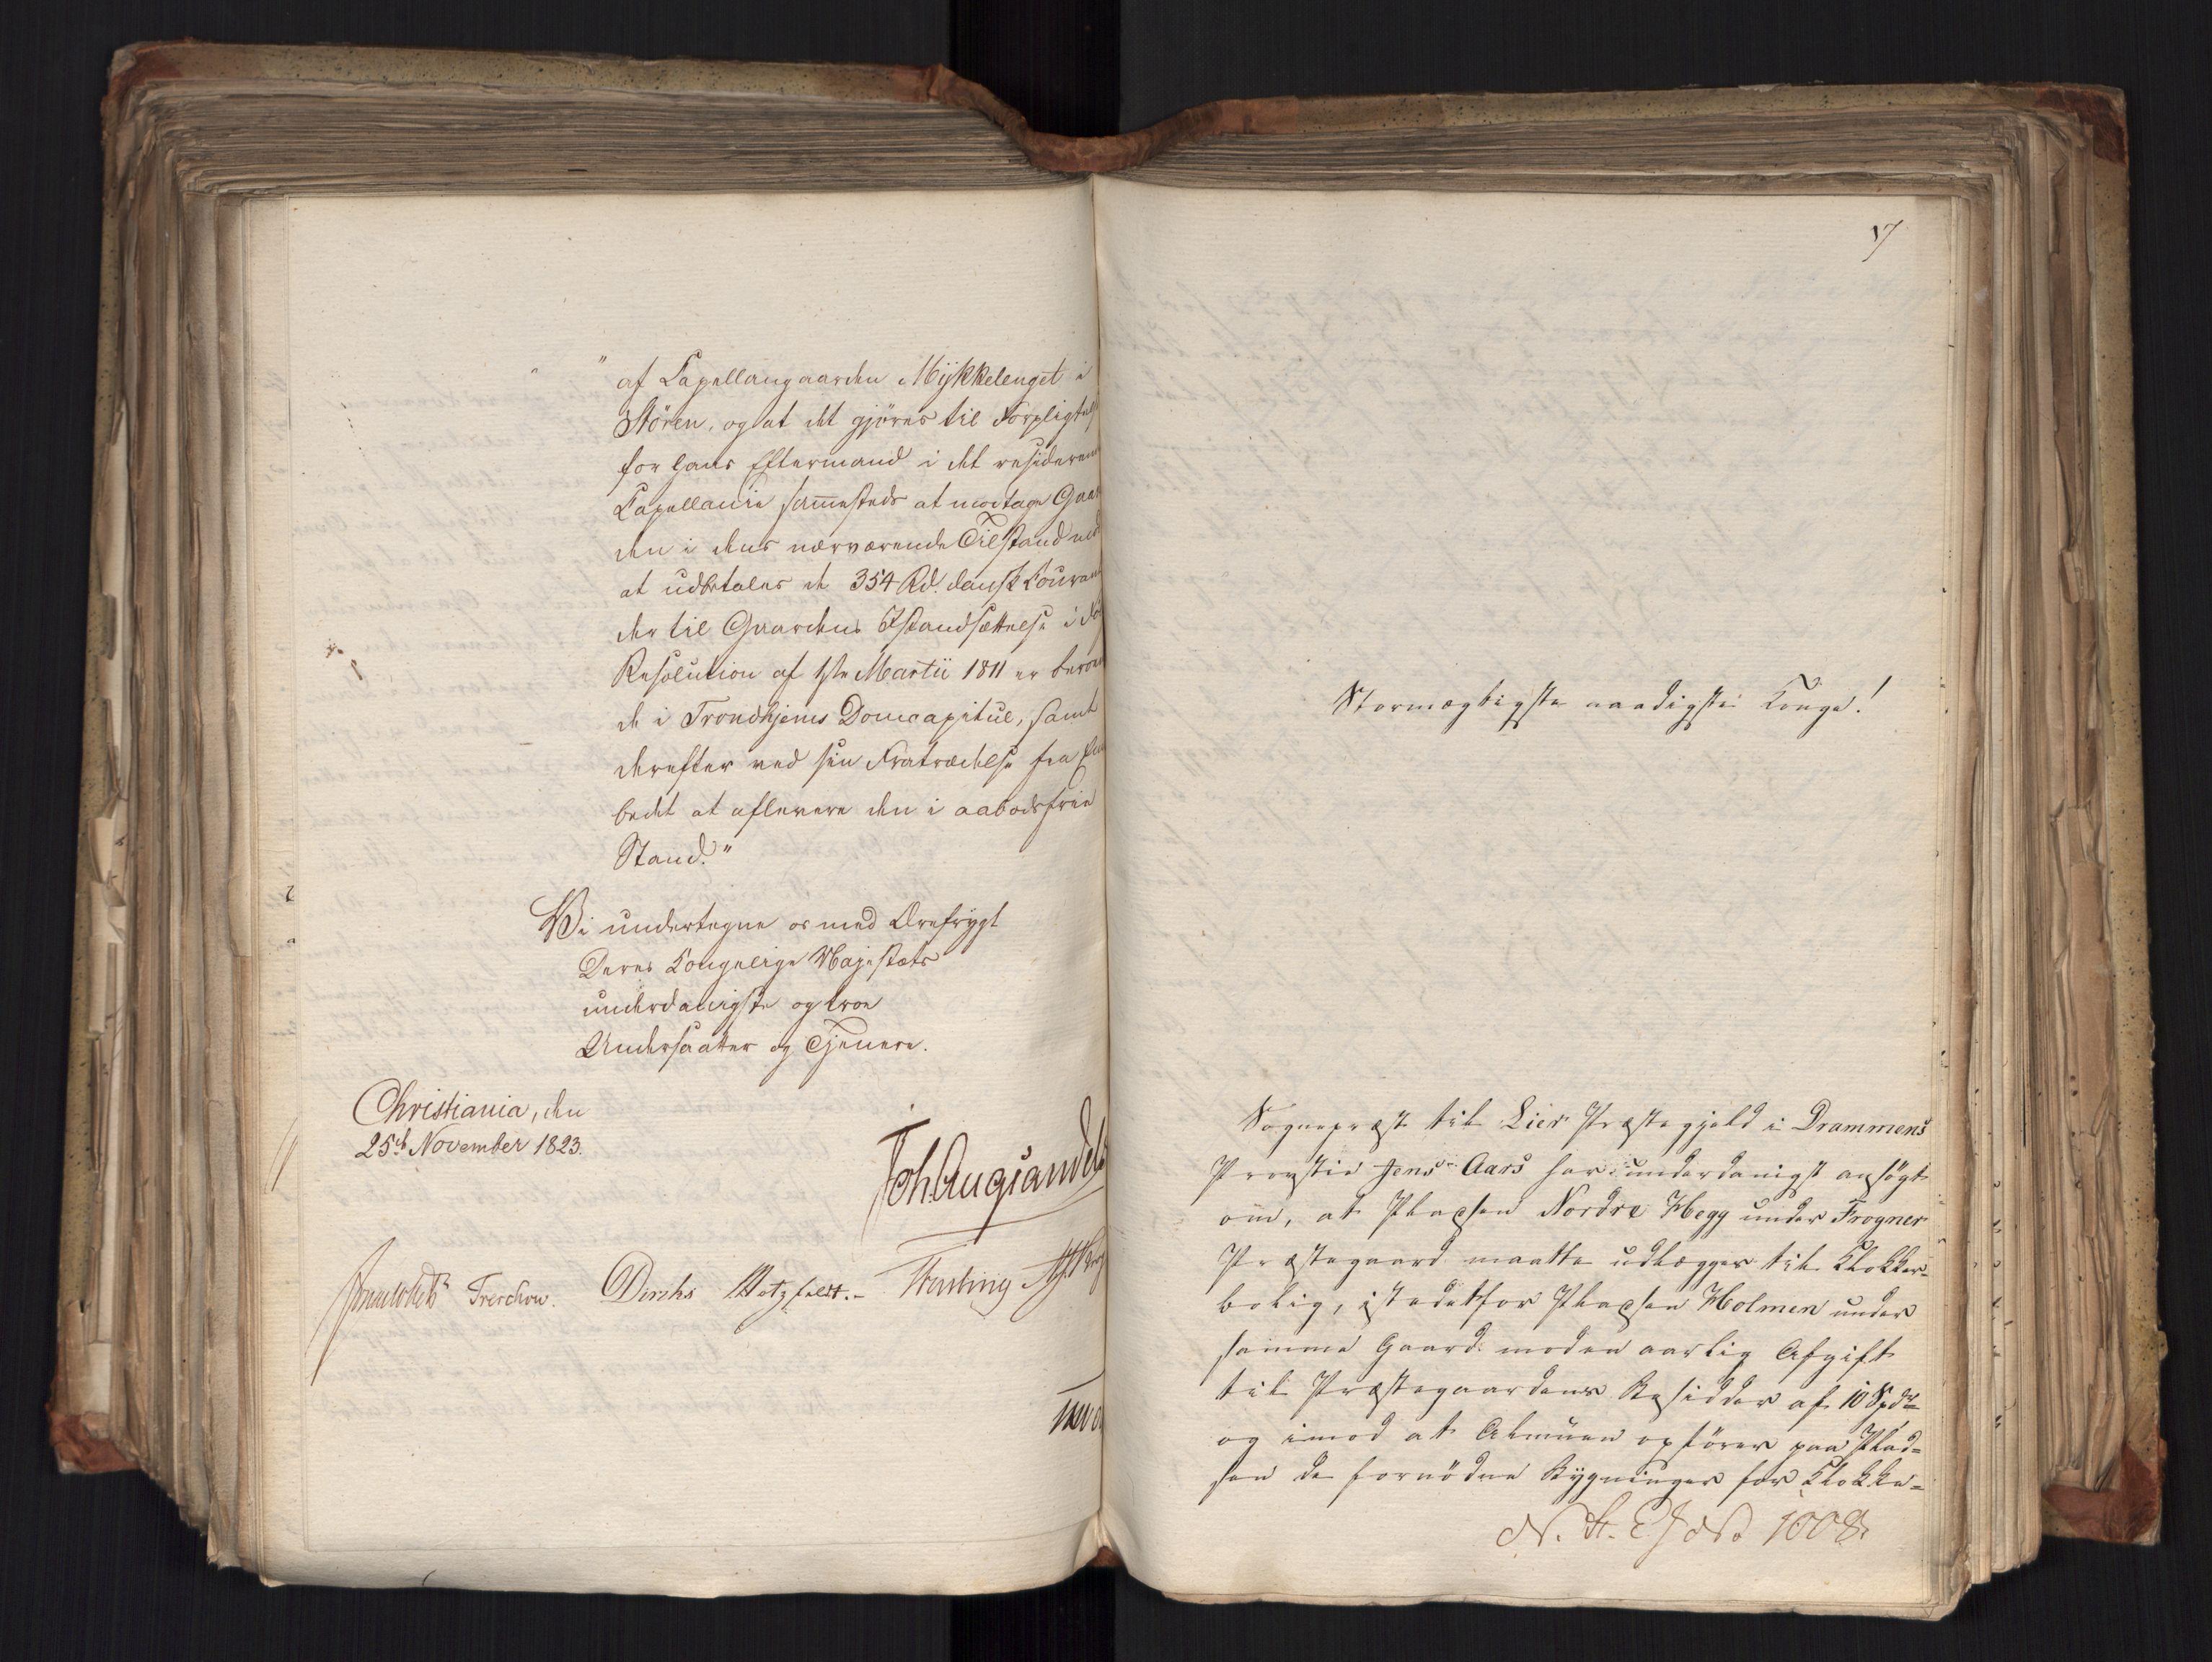 "af Capellangaarden Mykkelenget i
Stören, og at det gjöres til Forpligtels
for hans Eftermand i det residerend
Capellanie sammesteds at modtage Gaar
den i dens nærværende Tilstand ved
at udbetales de 354 Rd. dansk Courant
der til Gaardens Istandsættelse i Fø
Resolution af 1ste Martii 1811 er beroen
de i Trondhjems Domcapitul, samt
derefter ved sin Fratrædelse fra Em
bedet at aflevere den i aabodsfrie
Stand."
Vi undertegne os med Ærefrygt
Deres Kongelige Majestæts
underdanigste og troe
Undersaatter og Tjenere.
Christiania, den
25de November 1823.
Joh. Aug. Sandels
Treschow. Diriks Motzfeldt.
17
Stormægtigste naadigste Konge!
Sognepræst til Lier Præstegjeld i Drammens
Provstie Jens Aars har underdanigst ansögt
om, at Pladsen Nordre Hegg under Frogner
Præstegaard maatte udlægges til Klokker-
bolig, istedetfor Pladsen Holmen under
samme Gaard mod en aarlig Afgift
til Præstegaardens Besidder af 10 Spdr
og imod at Almuen opförer paa Plad-
sen de fornödne Bygninger for Klokke-
N. St. Ex. No 1008.